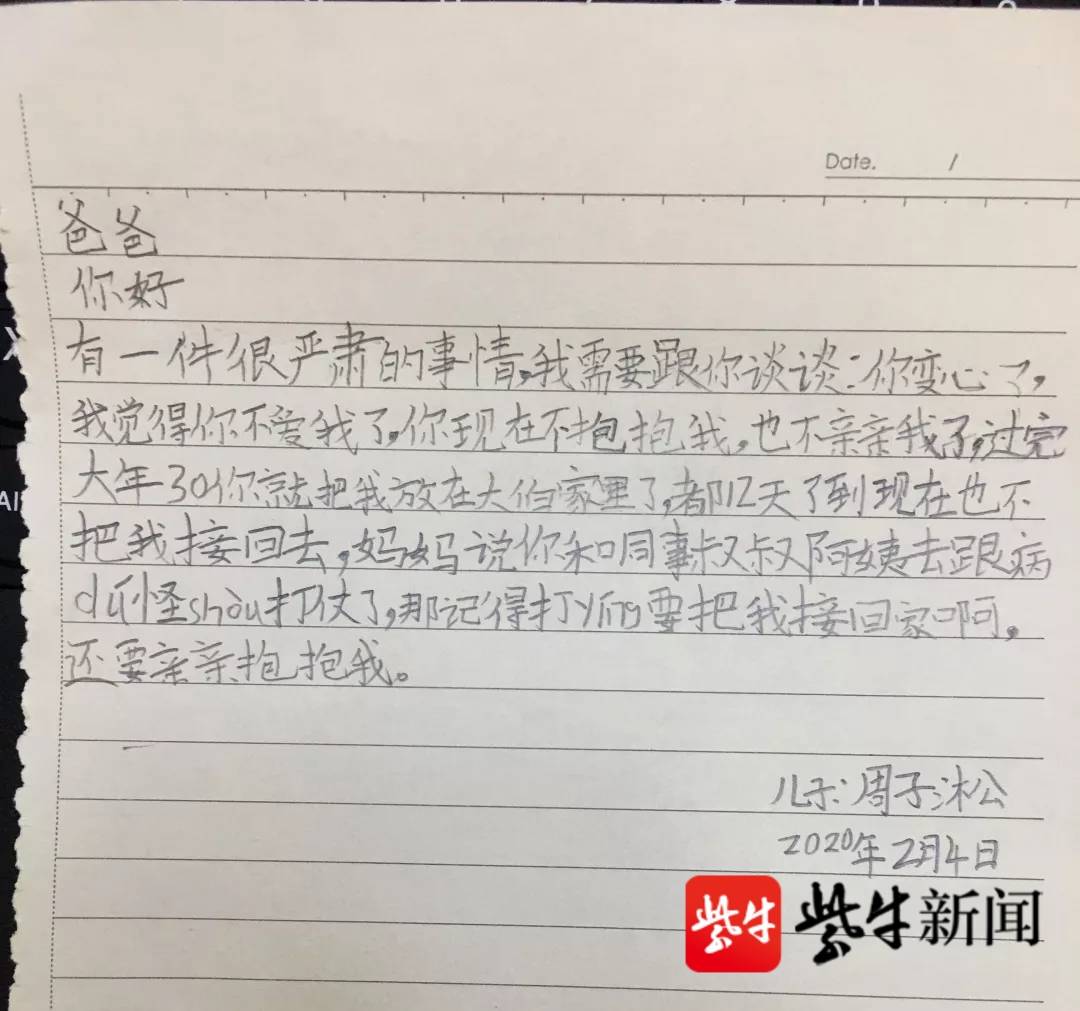 Date. /
爸爸
你好
有一件很严肃的事情,我需要跟你谈谈:你变心了,
我觉得你不爱我了,你现在不抱抱我,也不亲亲我了,过完
大年30你就把我放在大伯家里了,都12天了到现在也不
把我接回去,妈妈说你和同事叔叔阿姨去跟病
dú怪shòu打仗了,那记得打yíng要把我接回家啊,
还要亲亲抱抱我。
儿子:周子淞
2020年2月4日
紫牛 紫牛新闻